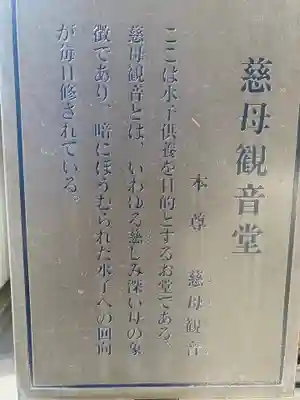 慈母観音堂
本尊 慈母観音
ここは水子供養を目的とするお堂である。
慈母観音とは、いわゆる慈しみ深い母の象
徴であり、暗にほうむられた水子への回向
が毎日修されている。